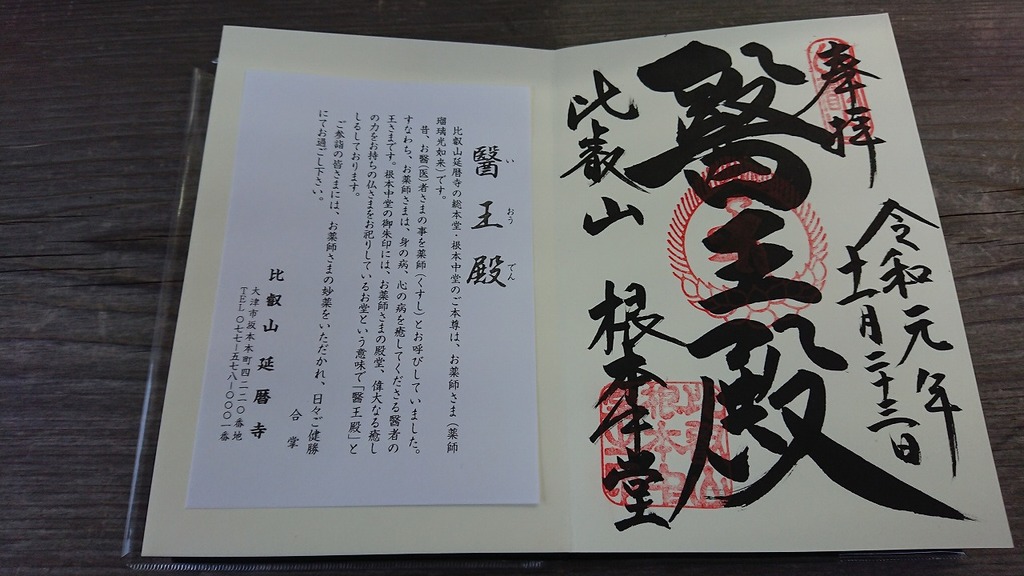 奉拝
令和元年
十一月二十三日
醫王殿
比叡山 根本中堂
醫王殿
いおうでん
比叡山延暦寺の総本堂・根本中堂のご本尊は、お薬師さま(薬師
瑠璃光如来)です。
昔、お醫(医)者さまの事を薬師(くすし)とお呼びしていました。
すなわち、お薬師さまは、身の病、心の病を癒してくださる醫者の
王さまです。根本中堂の御朱印には、お薬師さまの殿堂、偉大なる癒し
の力をお持ちの仏さまをお祀りしているお堂という意味で「醫王殿」と
しるしております。
ご参詣の皆さまには、お薬師さまの妙薬をいただかれ、日々ご健勝
にてお過ごし下さい。
合掌
比叡山延暦寺
大津市坂本本町四二二〇番地
TEL〇七七-五七八-〇〇〇一番